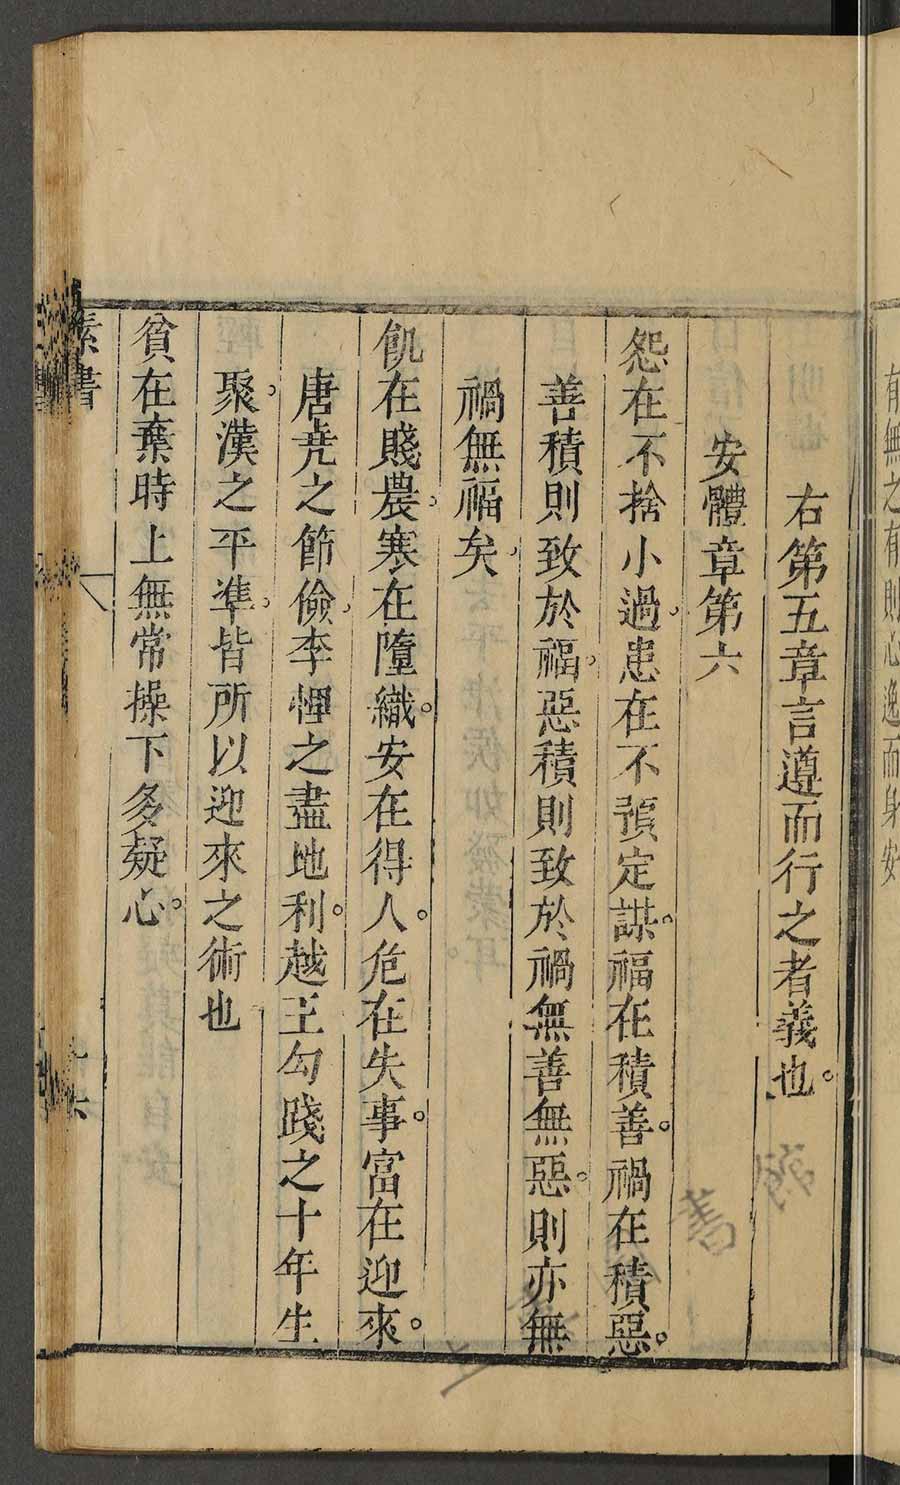 有無之有則心逸而身安
右第五章言遵而行之者義也。
安體章第六
怨在不捨小過。患在不預定謀。福在積善。禍在積惡。
善積則致於福。惡積則致於禍無善無惡。則亦無
禍無福矣。
飢在賤農。寒在墮織。安在得人。危在失事。富在迎來。
唐尭之節儉。李悝之盡地利。越王勾踐之十年生
聚。漢之平準。皆所以迎來之術也
貧在棄時上無常操下多疑心。
素書